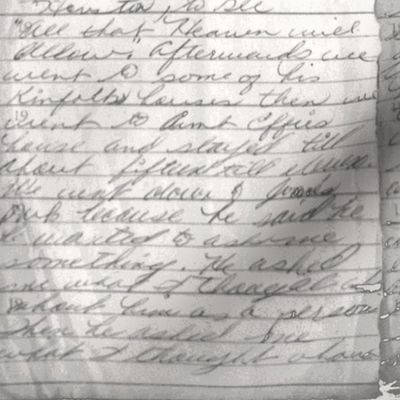 Houston, to see
"All that Heaven will
Allow." Afterwards we
went to some of his
Kinfolks houses then we
went to Aunt Effies
house and stayed till
about fifteen till eleven.
We went down
because he said he
wanted to ask me
something. He asked
me what I thought
about him as a person
then he asked me
what I thought about